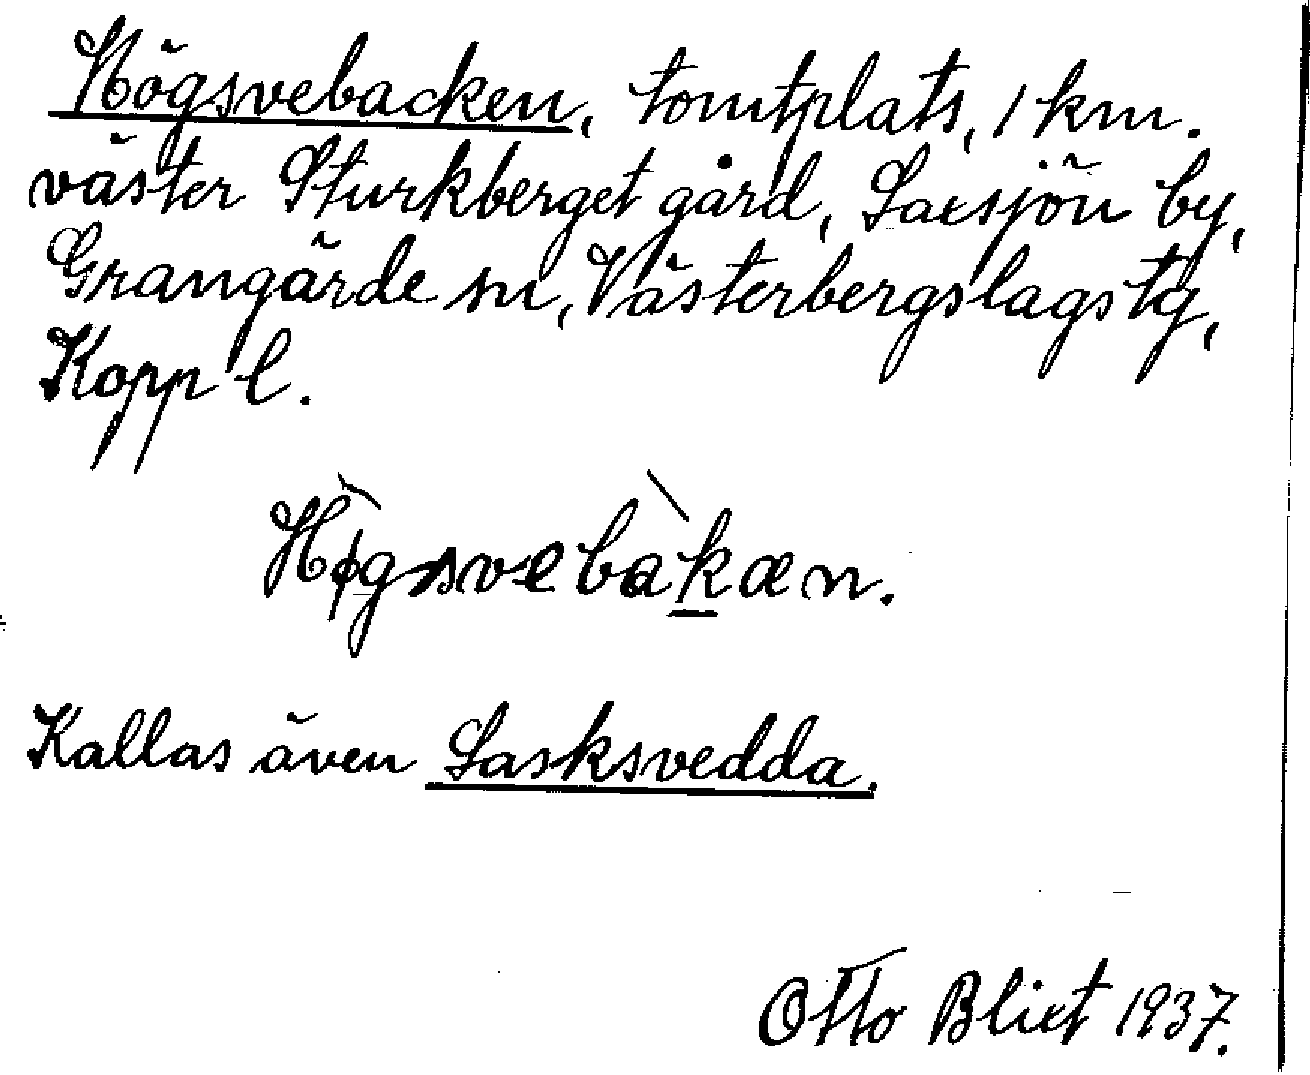 Högsvebacken, tomtplats, 1 km.
väster Sturkberget gård, Saxsjön by,
Grangärde sn, Västerbergslags tg,
Kopp l.
Hø̀gsvebàkæn.
Kallas även Lasksvedda.
Otto Blixt 1937.